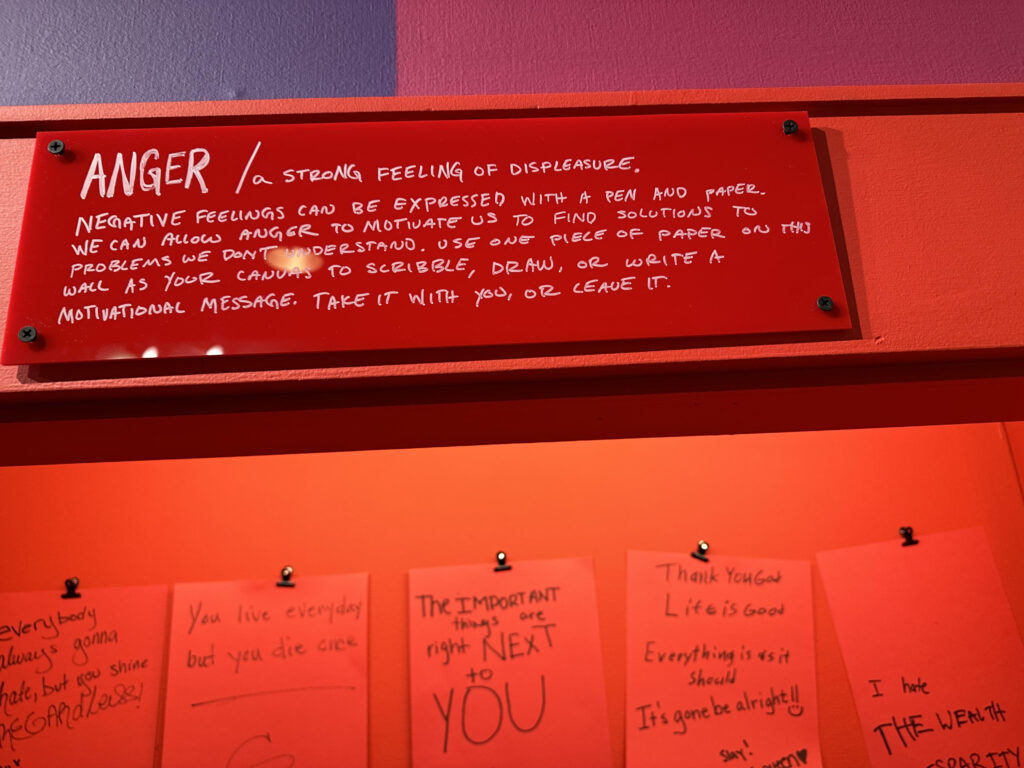 ANGER / a STRONG FEELING OF DISPLEASURE.
NEGATIVE FEELINGS CAN BE EXPRESSED WITH A PEN AND PAPER.
WE CAN ALLOW ANGER TO MOTIVATE US TO FIND SOLUTIONS TO
PROBLEMS WE DON'T UNDERSTAND. USE ONE PIECE OF PAPER ON THIS
WALL AS YOUR CANVAS TO SCRIBBLE, DRAW, OR WRITE A
MOTIVATIONAL MESSAGE. TAKE IT WITH YOU, OR LEAVE IT.
everybody
always gonna
hate, but you shine
REGARDLESS!
You live everyday
but you die once
The IMPORTANT
things are
right NEXT
to
YOU
Thank You God
Life is Good
Everything is as it
Should
It's gone be alright!!
slay!
I hate
THE WEALTH